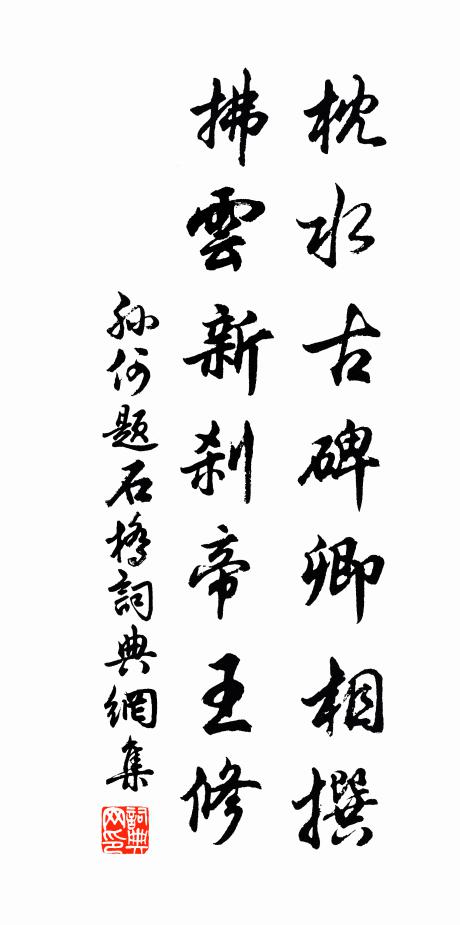 枕水古碑卿相撰
拂雲新刹帝王修
孫何題石橋詞典網集
詞典网印